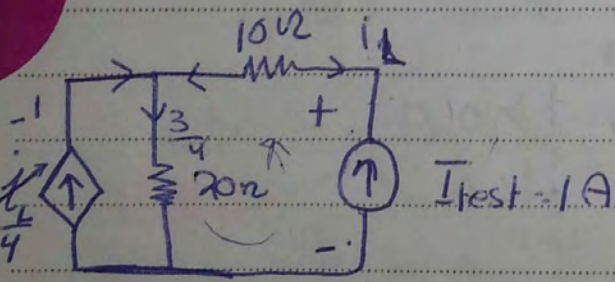 10Ω i₁
-1 3/4 +
i/4 20Ω I test = 1 A
-